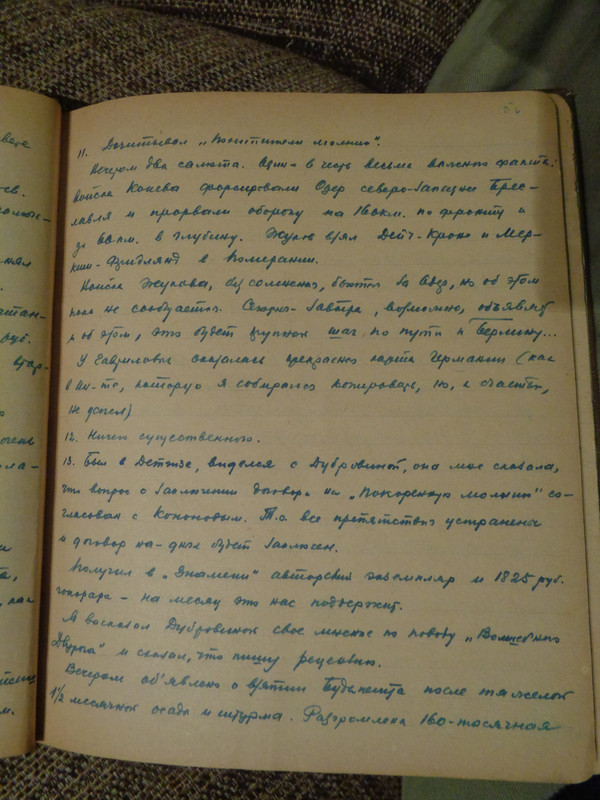 вете
ев.
нял
стан-
руб.
очень
и
та,
как
м.
11. Дочитывал „Похитители молнии".
Вечером два салюта. Один – в честь весьма важного факта:
войска Конева форсировали Одер северо-западнее Брес-
лавля и прорвали оборону на 160 км. по фронту и
до 60 км. в глубину. Жуков взял Дейч-Кроне и Мер-
киш-Фридлянд в Померании.
Войска Жукова, без сомненья, бьются за Одер, но об этом
пока не сообщается. Сегодня-завтра, возможно, объявят
и об этом, это будет крупной шаг по пути к Берлину...
У Гавриловых оказалась прекрасная карта Германии (как
в Ин-те, которую я собирался копировать, но, к счастью,
не успел)
12. Ничего существенного.
13. Был в Детгизе, виделся с Дубровиной, она мне сказала,
что вопрос о заключении договора на „Покоренную молнию" со-
гласован с Кононовым. Т.о. все препятствия устранены
и договор на-днях будет заключен.
Получил в „Знамени" авторский экземпляр и 1825 руб.
гонорара – на месяц это нас поддержит.
Я высказал Дубровиной свое мнение по поводу „Волшебного
и сказал, что пишу рецензию.
Вечером об'явлено о взятии Будапешта после тяжелой
1½ месячной осады и штурма. Разгромлена 160-тысячная